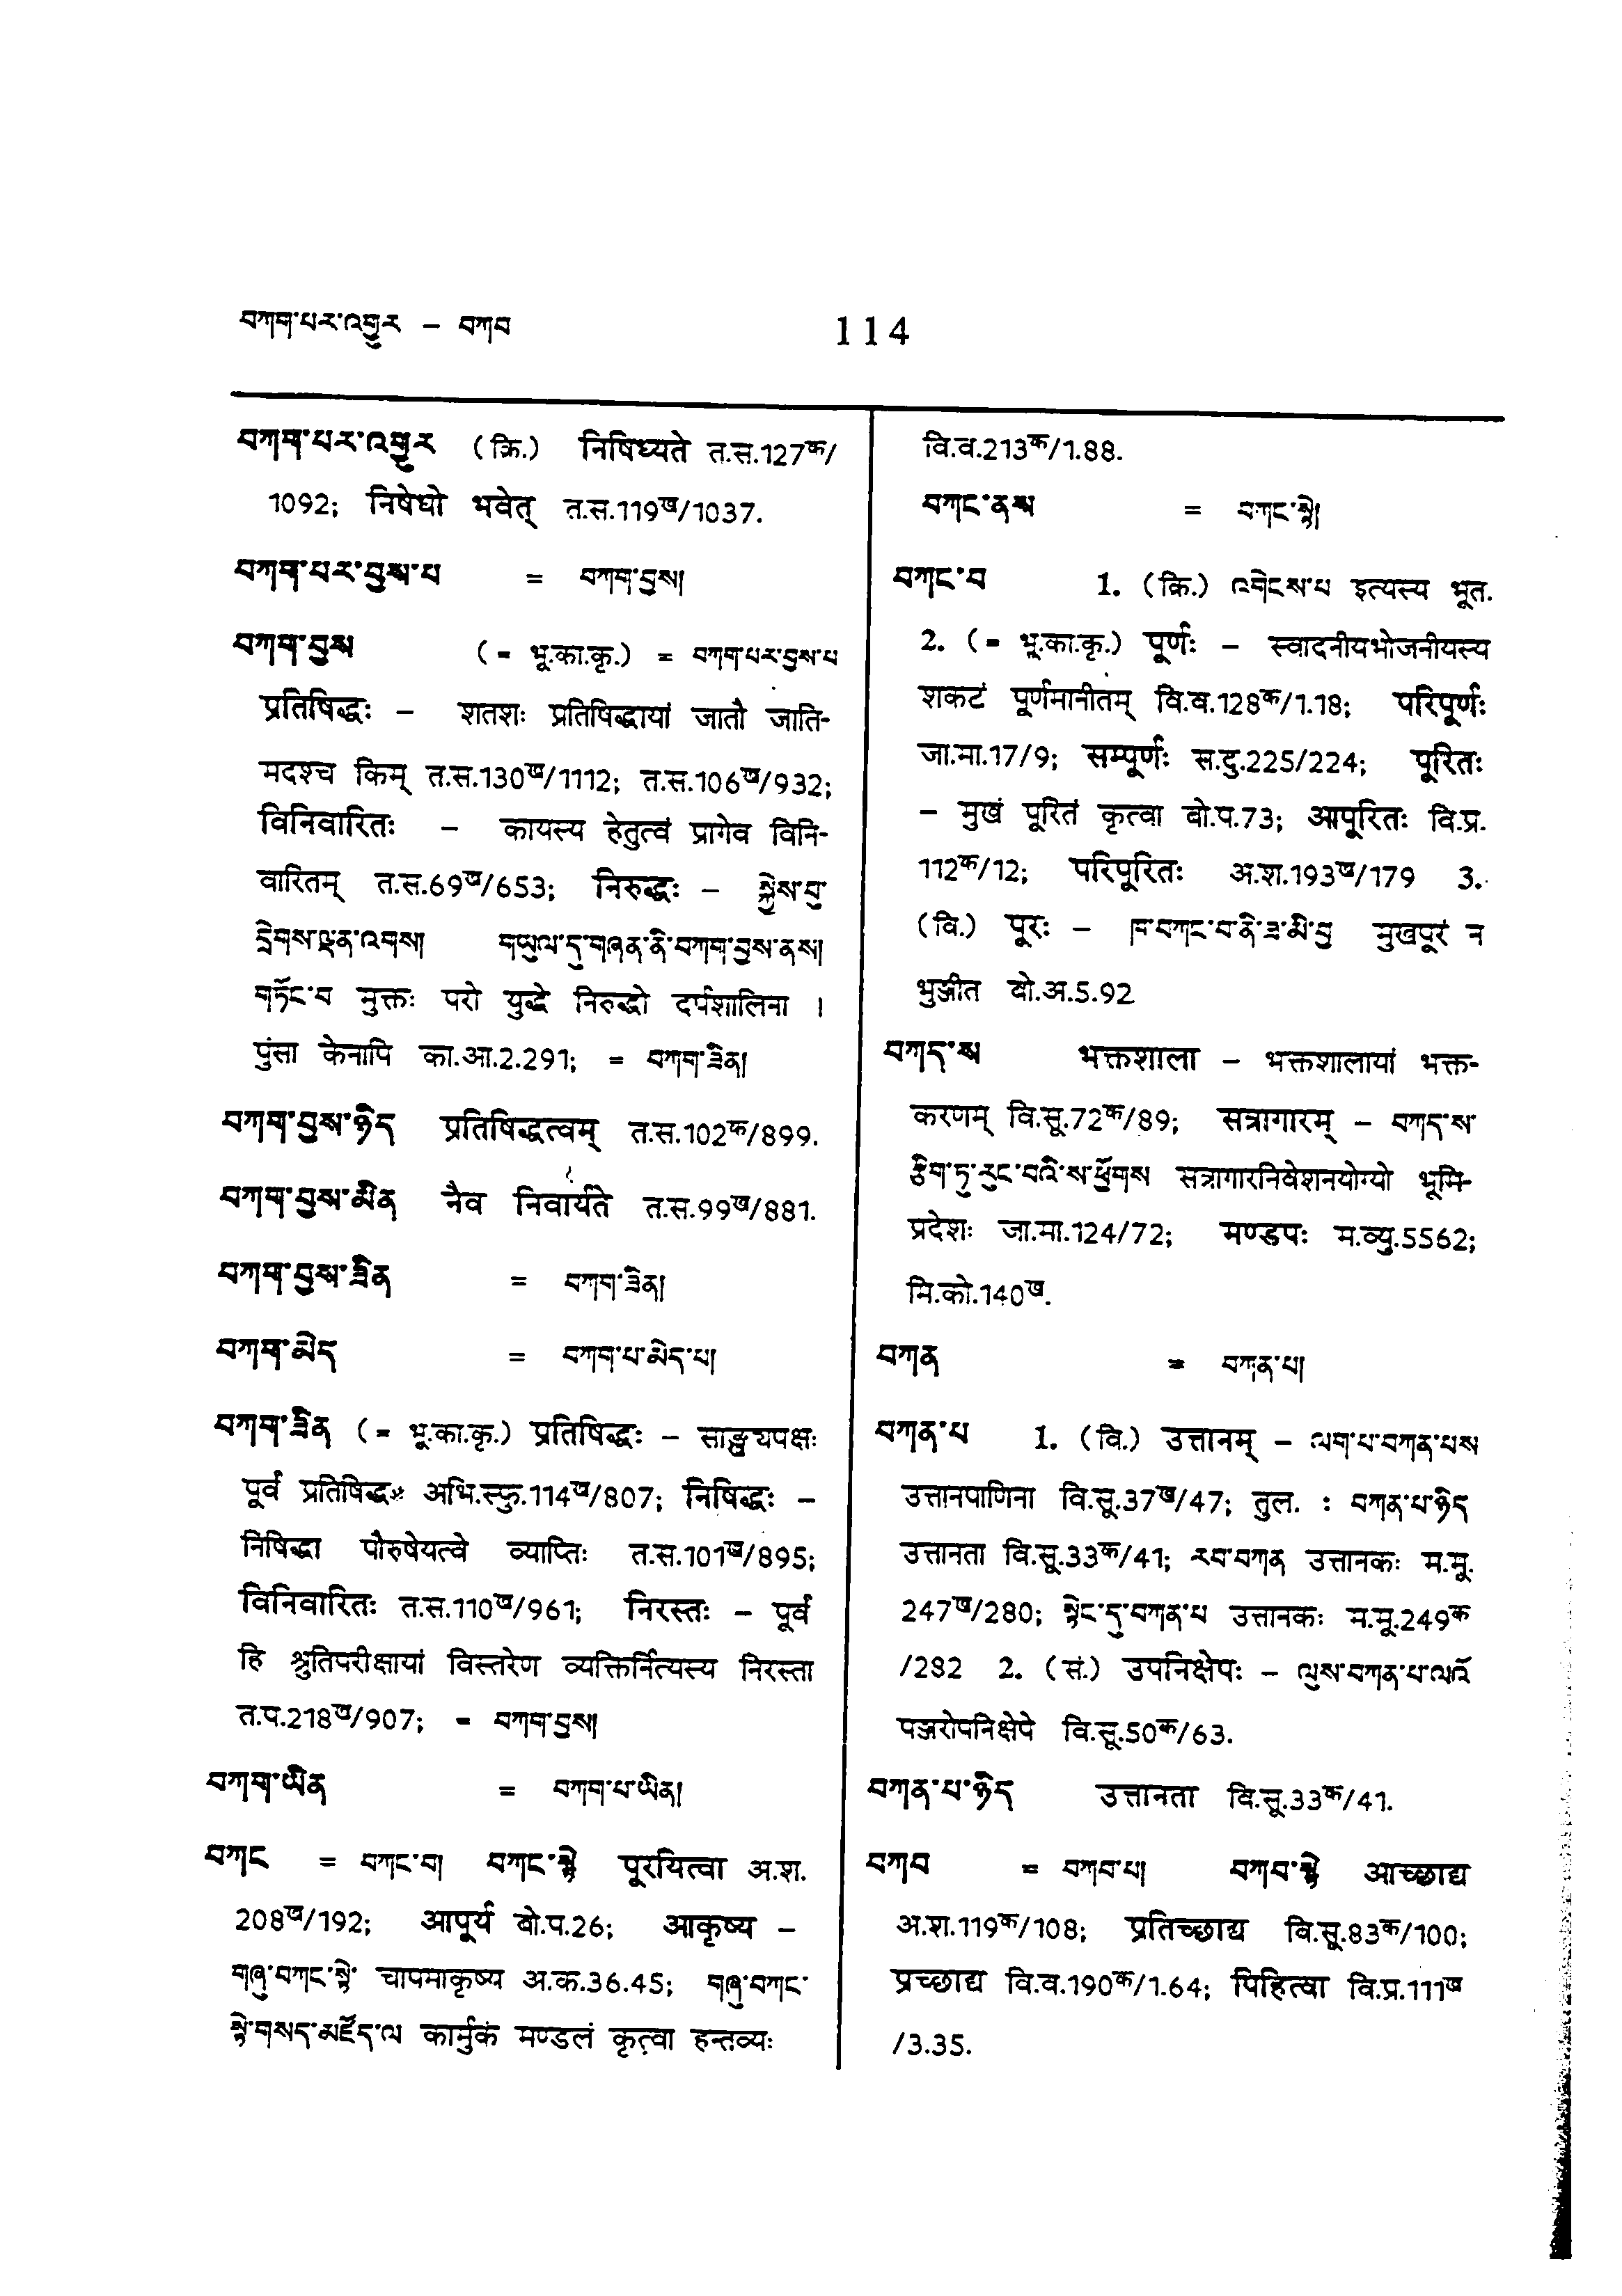 བཀག་པར་འགྱུར – བཀབ
114
བཀག་པར་འགྱུར (क्रि.) निषिध्यते त.स.127क/
1092; निषेधो भवेत् त.स.119ख/1037.
བཀག་པར་བྱས་པ = བཀག་བྱས།
བཀག་བྱས (= भू.का.कृ.) = བཀག་པར་བྱས་པ
प्रतिषिद्धः – शतशः प्रतिषिद्धायां जातौ जाति-
मदश्च किम् त.स.130ख/1112; त.स.106ख/932;
विनिवारितः – कायस्य हेतुत्वं प्रागेव विनि-
वारितम् त.स.69ख/653; निरुद्धः – སྐྱེས་བུ་
དྲེགས་ལྡན་འགས། གཡུལ་དུ་གཞན་ནི་བཀག་བྱས་ནས།
གཏོང་བ मुक्तः परो युद्धे निरुद्धो दर्पशालिना ।
पुंसा केनापि का.आ.2.291; = བཀག་ཟིན།
བཀག་བྱས་ཉིད प्रतिषिद्धत्वम् त.स.102क/899.
བཀག་བྱས་མིན नैव निवार्यते त.स.99ख/881.
བཀག་བྱས་ཟིན = བཀག་ཟིན།
བཀག་མེད = བཀག་པ་མེད་པ།
བཀག་ཟིན (= भू.का.कृ.) प्रतिषिद्धः – साङ्ख्यपक्षः
पूर्वं प्रतिषिद्धः अभि.स्फु.114ख/807; निषिद्धः –
निषिद्धा पौरुषेयत्वे व्याप्तिः त.स.101ख/895;
विनिवारितः त.स.110ख/961; निरस्तः – पूर्वं
हि श्रुतिपरीक्षायां विस्तरेण व्यक्तिर्नित्यस्य निरस्ता
त.प.218ख/907; = བཀག་བྱས།
བཀག་ཡིན = བཀག་པ་ཡིན།
བཀང = བཀང་བ། བཀང་སྟེ पूरयित्वा अ.श.
208ख/192; आपूर्य बो.प.26; आकृष्य –
གཞུ་བཀང་སྟེ་ चापमाकृष्य अ.क.36.45; གཞུ་བཀང་
སྟེ་གསད་མཛོད་ལ कार्मुकं मण्डलं कृत्वा हन्तव्यः
वि.व.213क/1.88.
བཀང་ནས = བཀང་སྟེ།
བཀང་བ 1. (क्रि.) འགེངས་པ इत्यस्य भूत.
2. (= भू.का.कृ.) पूर्णः – स्वादनीयभोजनीयस्य
शकटं पूर्णमानीतम् वि.व.128क/1.18; परिपूर्णः
जा.मा.17/9; सम्पूर्णः स.दु.225/224; पूरितः
– मुखं पूरितं कृत्वा बो.प.73; आपूरितः वि.प्र.
112क/12; परिपूरितः अ.श.193ख/179 3.
(वि.) पूरः – ཁ་བཀང་བ་ནི་ཟ་མི་བྱ मुखपूरं न
भुञ्जीत बो.अ.5.92
བཀད་ས भक्तशाला – भक्तशालायां भक्त-
करणम् वि.सू.72क/89; सत्रागारम् – བཀད་ས་
རྩིག་ཏུ་རུང་བའི་ས་ཕྱོགས सत्रागारनिवेशनयोग्यो भूमि-
प्रदेशः जा.मा.124/72; मण्डपः म.व्यु.5562;
मि.को.140ख.
བཀན = བཀན་པ།
བཀན་པ 1. (वि.) उत्तानम् – ལག་པ་བཀན་པས
उत्तानपाणिना वि.सू.37ख/47; तुल. : བཀན་པ་ཉིད
उत्तानता वि.सू.33क/41; རབ་བཀན उत्तानकः म.मू.
247ख/280; སྟེང་དུ་བཀན་པ उत्तानकः म.मू.249क
/282 2. (सं.) उपनिक्षेपः – ལུས་བཀན་པ་ལའོ
पञ्जरोपनिक्षेपे वि.सू.50क/63.
བཀན་པ་ཉིད उत्तानता वि.सू.33क/41.
བཀབ = བཀབ་པ། བཀབ་སྟེ आच्छाद्य
अ.श.119क/108; प्रतिच्छाद्य वि.सू.83क/100;
प्रच्छाद्य वि.व.190क/1.64; पिहित्वा वि.प्र.111ख
/3.35.